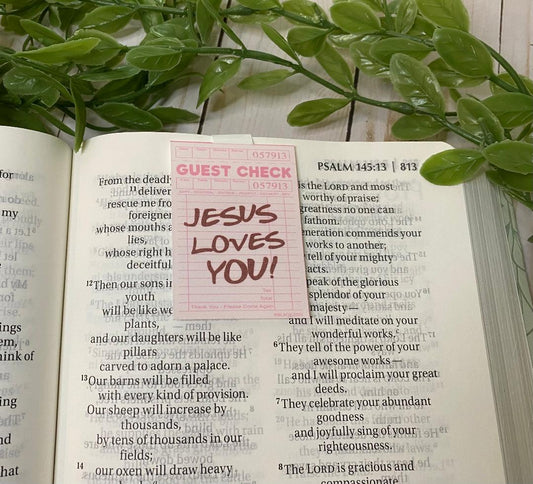 PSALM 145:13 | 813
057913
GUEST CHECK
057913
JESUS
LOVES
YOU!
Tax
Total
Thank You - Please Come Again
From the deadly
11 deliver
rescue me from
foreigne
whose mouths
lies,
whose right h
deceitful
12 Then our sons in
youth
will be like
plants,
and our daughters will be like
pillars
carved to adorn a palace.
13 Our barns will be filled
with every kind of provision.
Our sheep will increase by
thousands,
by tens of thousands in our
fields;
14 our oxen will draw heavy
is the LORD and most
worthy of praise;
greatness no one can
fathom.
neration commends your
works to another;
tell of your mighty
acts.
speak of the glorious
splendor of your
majesty—
and I will meditate on your
wonderful works.
6 They tell of the power of your
awesome works—
and I will proclaim your great
deeds.
7 They celebrate your abundant
goodness
and joyfully sing of your
righteousness.
8 The LORD is gracious and
compassionate
for
my
ngs
em,
hink of
s
ng
that